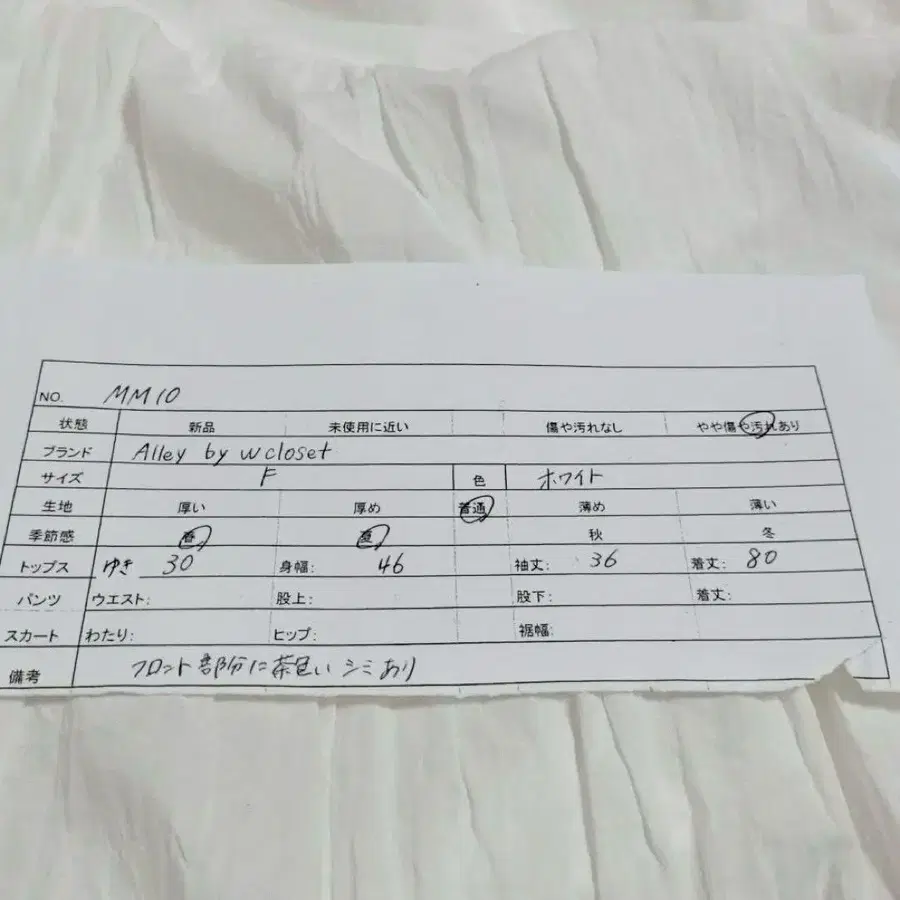 NO. MM10
状態 新品 未使用に近い 傷や汚れなし やや傷や汚れあり
ブランド Alley by wcloset
サイズ F 色 ホワイト
生地 厚い 厚め 普通 薄め 薄い
季節感 春 夏 秋 冬
トップス ゆき 30 身幅: 46 袖丈: 36 着丈: 80
パンツ ウエスト: 股上: 股下: 着丈:
スカート わたり: ヒップ: 裾幅:
備考 フロント部分に茶色いシミあり